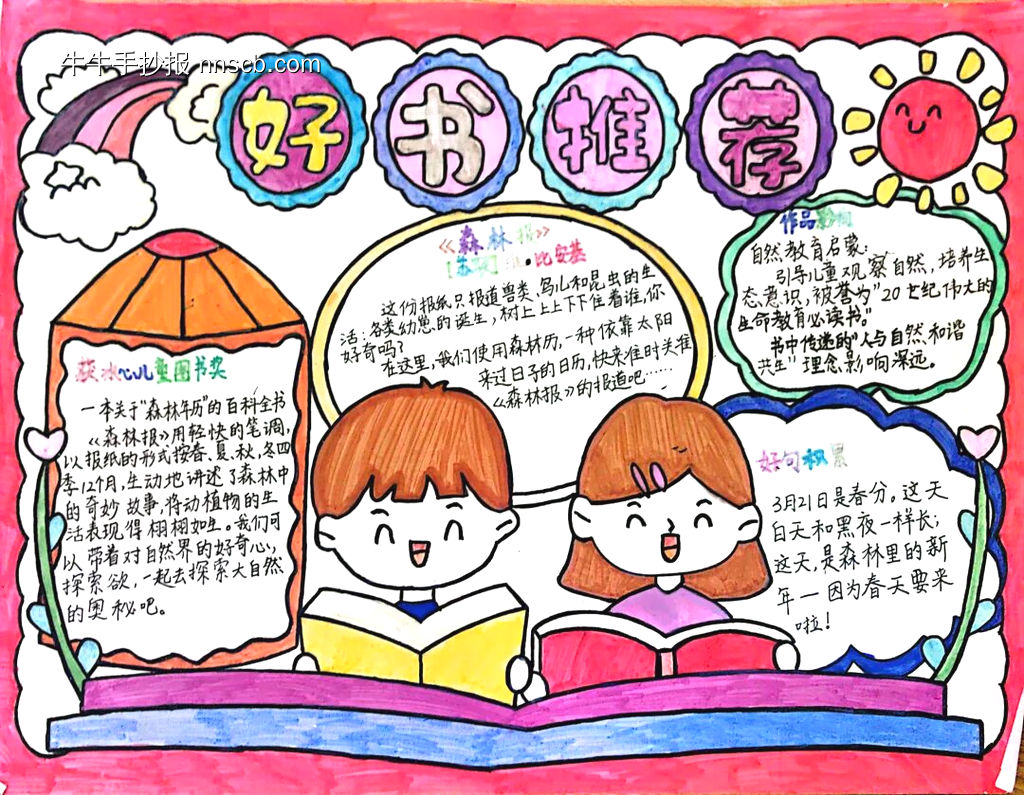 牛牛手抄报 nnscb.com
好书推荐
《森林报》
【苏联】维•比安基
这份报纸只报道兽类、鸟儿和昆虫的生
活:各类幼崽的诞生,树上上上下下住着谁,你
好奇吗?
在这里,我们使用森林历,一种依靠太阳
来过日子的日历,快来准时关注
《森林报》的报道吧……
作品影响
自然教育启蒙:
引导儿童观察自然,培养生
态意识,被誉为"20世纪伟大的
生命教育必读书。"
书中传递的"人与自然和谐
共生"理念影响深远。
获冰心儿童图书奖
一本关于"森林年历"的百科全书
《森林报》用轻快的笔调,
以报纸的形式按春、夏、秋、冬四
季12个月,生动地讲述了森林中
的奇妙故事,将动植物的生
活表现得栩栩如生。我们可
以带着对自然界的好奇心,
探索欲,一起去探索大自然
的奥秘吧。
好句积累
3月21日是春分。这天
白天和黑夜一样长;
这天,是森林里的新
年—因为春天要来
啦!